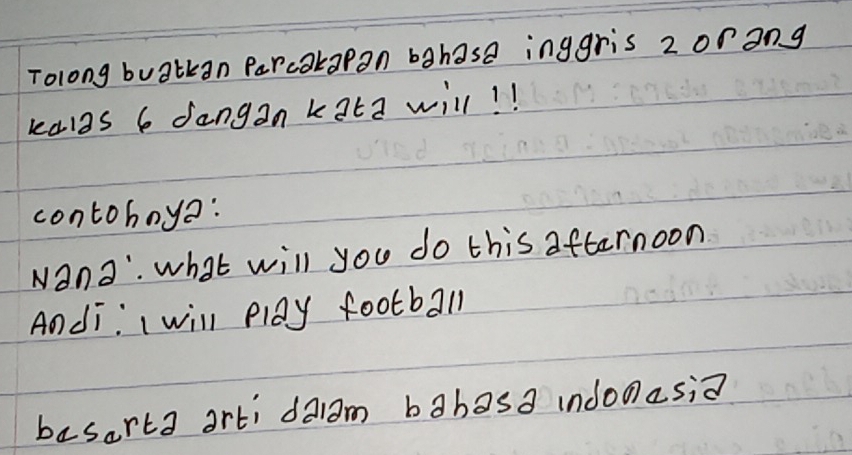 Tolong buatkan percakapan bahasa inggris 2 orang
kelas 6 dengan kata will !!
contohnya:
Nana: what will you do this afternoon
Andi: i will play football
beserta arti dalam bahasa indonesia